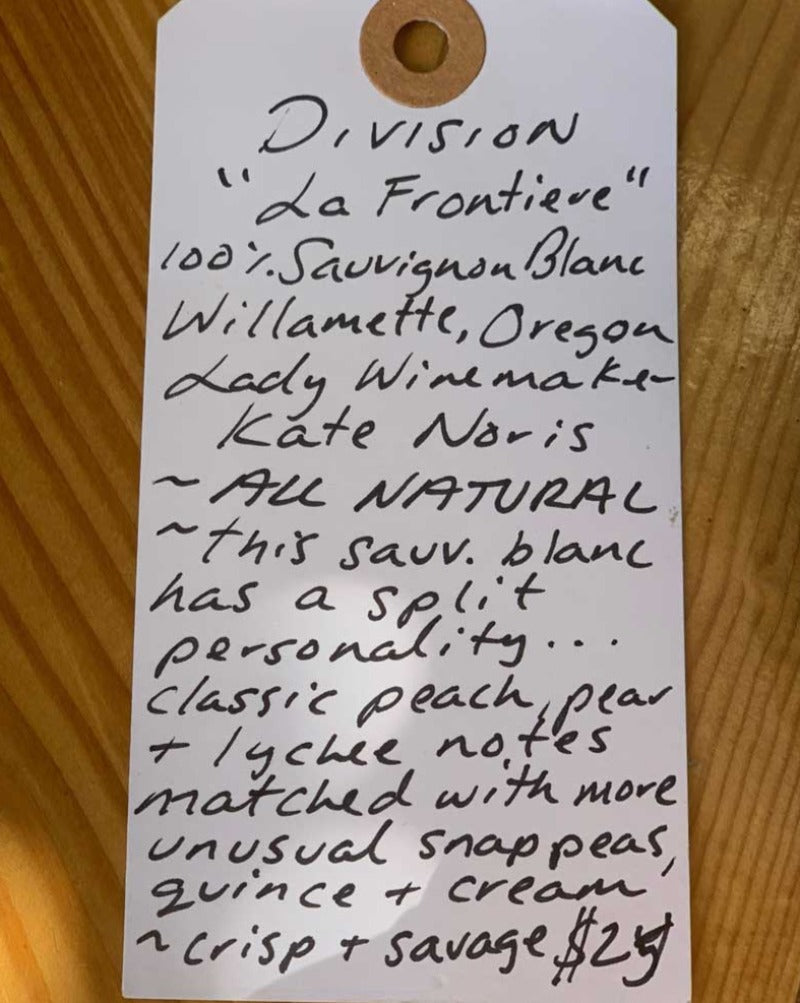 DIVISION
"La Frontiere"
100% Sauvignon Blanc
Willamette, Oregon
Lady Winemaker
Kate Noris
~ ALL NATURAL
~ this sauv. blanc
has a split
personality...
classic peach, pear
+ lychee notes
matched with more
unusual snap peas,
quince + cream
~ crisp + savage